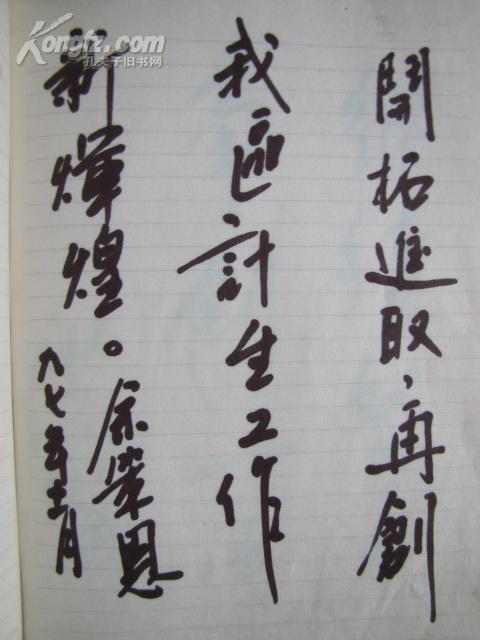 開拓進取，再創
我區計生工作
新煇煌。
余榮恩
九七年十一月
Kongfz.com
孔夫子旧书网